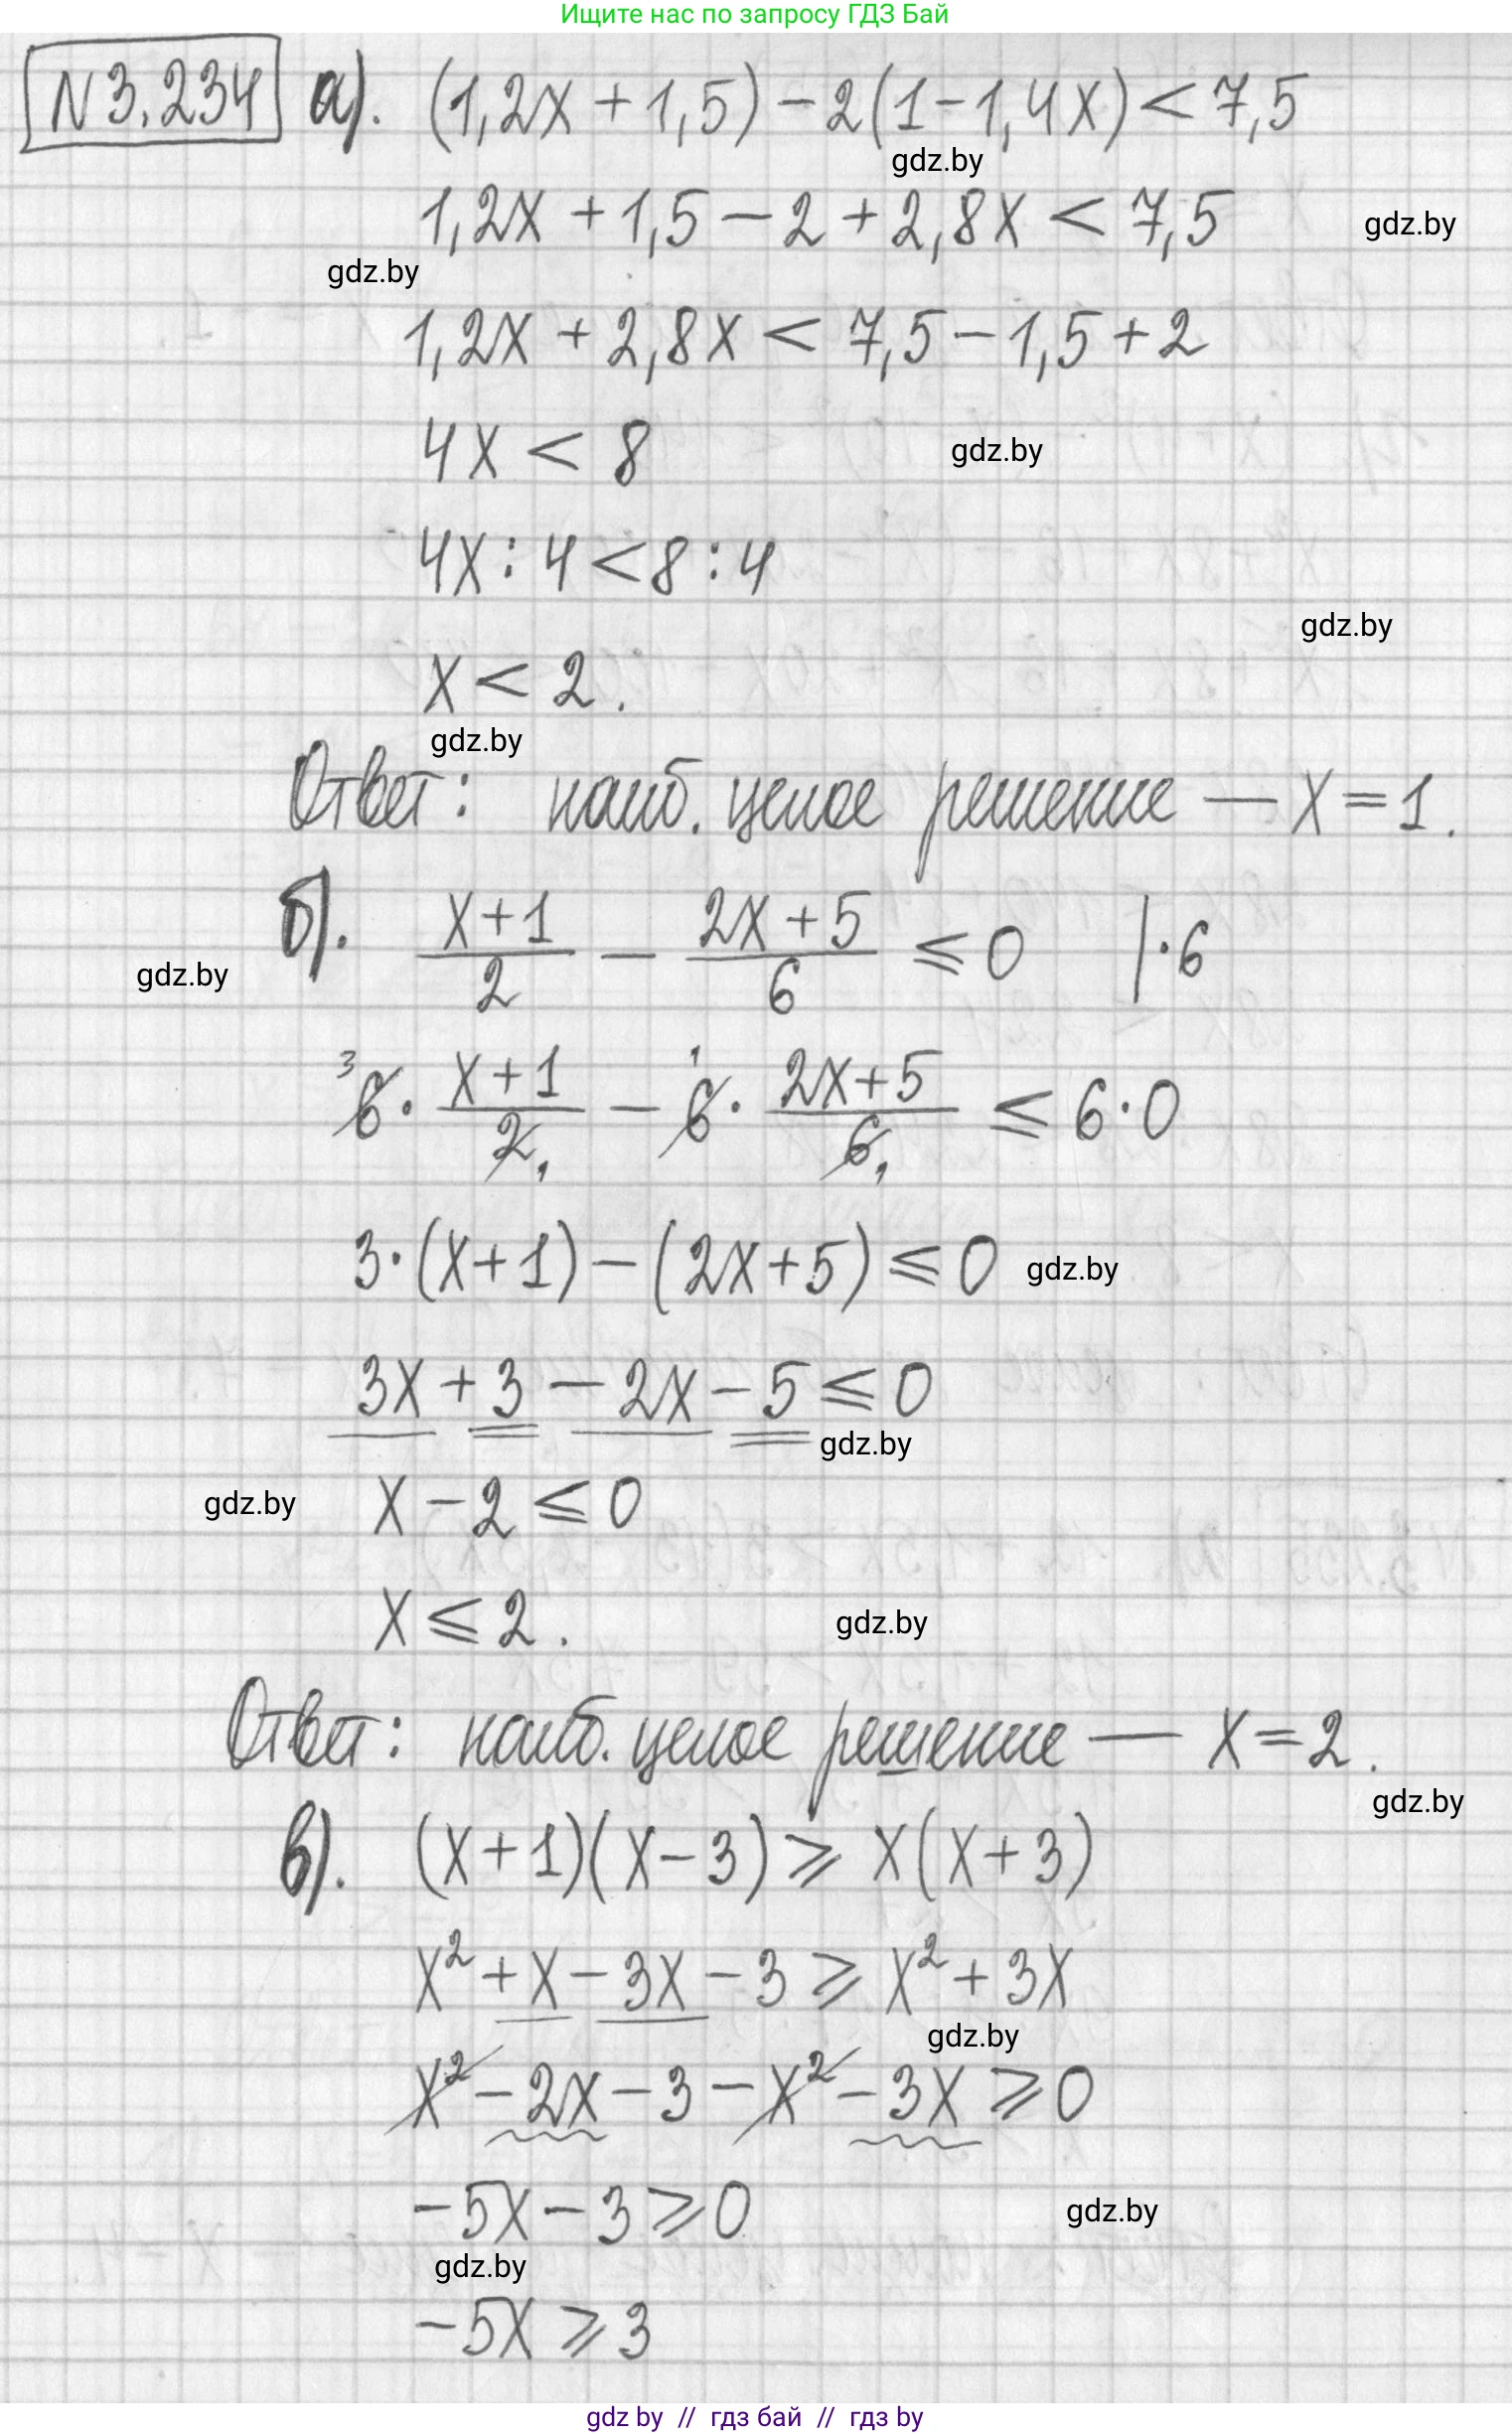 Ищите нас по запросу ГДЗ Бай
N3.234 а). (1,2x + 1,5) - 2(1 - 1,4x) < 7,5
gdz.by
1,2x + 1,5 - 2 + 2,8x < 7,5
gdz.by
gdz.by
1,2x + 2,8x < 7,5 - 1,5 + 2
4x < 8
gdz.by
4x : 4 < 8 : 4
gdz.by
x < 2.
gdz.by
Ответ: наиб. целое решение — x = 1.
б). (x+1)/2 - (2x+5)/6 ≤ 0 |·6
gdz.by
³6 · (x+1)/2₁ - ¹6 · (2x+5)/6₁ ≤ 6·0
3·(x+1) - (2x+5) ≤ 0
gdz.by
3x + 3 - 2x - 5 ≤ 0
gdz.by
gdz.by
x - 2 ≤ 0
x ≤ 2.
gdz.by
Ответ: наиб. целое решение — x = 2.
gdz.by
в). (x+1)(x-3) ≥ x(x+3)
x² + x - 3x - 3 ≥ x² + 3x
gdz.by
x² - 2x - 3 - x² - 3x ≥ 0
-5x - 3 ≥ 0
gdz.by
gdz.by
-5x ≥ 3
gdz by // гдз бай // гдз by